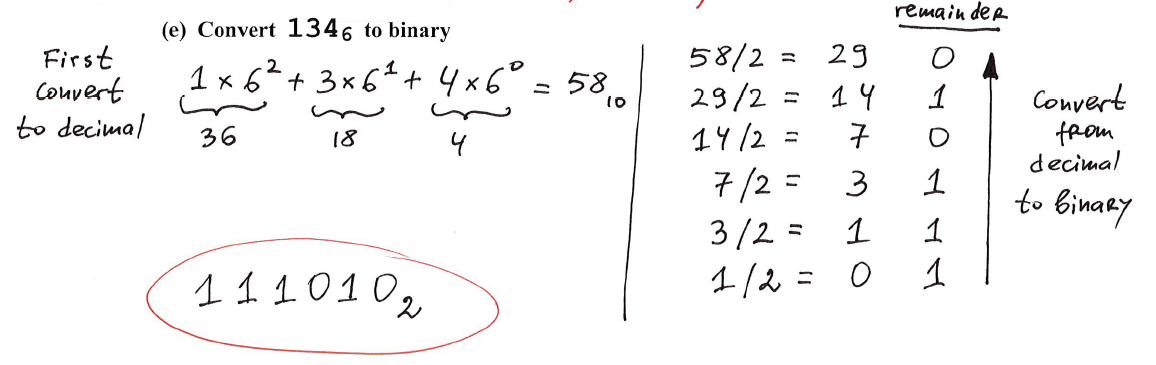 (e) Convert 134₆ to binary
First
convert
to decimal
1 × 6² + 3 × 6¹ + 4 × 6⁰ = 58₁₀
36 18 4
111010₂
remainder
58/2 = 29 0
29/2 = 14 1
14/2 = 7 0
7/2 = 3 1
3/2 = 1 1
1/2 = 0 1
Convert
from
decimal
to binary